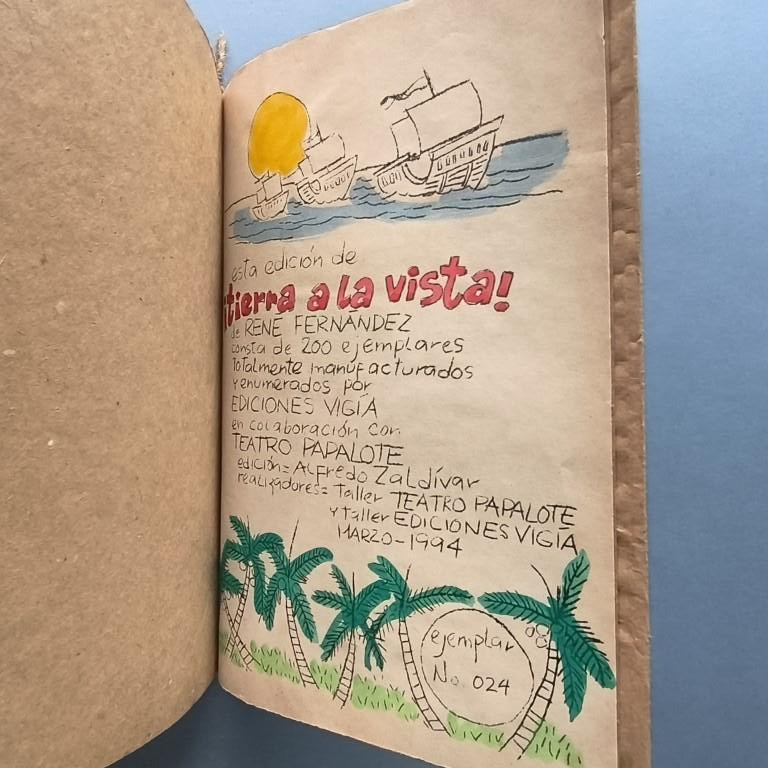 esta edición de
¡tierra a la vista!
de RENÉ FERNÁNDEZ
consta de 200 ejemplares
totalmente manufacturados
y enumerados por
EDICIONES VIGÍA
en colaboración con
TEATRO PAPALOTE
edición= Alfredo Zaldívar
realizadores= Taller TEATRO PAPALOTE
y Taller EDICIONES VIGÍA
MARZO-1994
ejemplar
No. 024